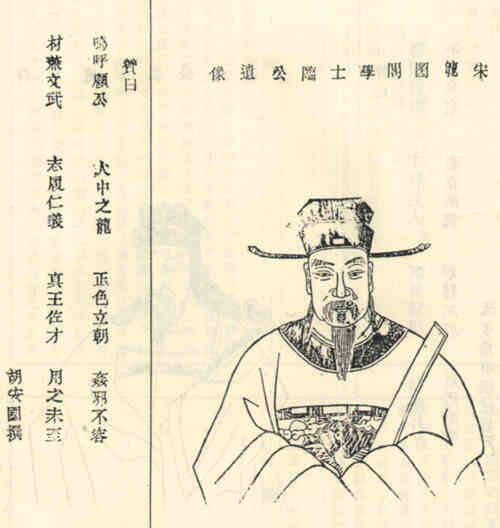 宋龍图閣學士臨公遺像
贊曰
嗚呼顧公 人中之龍 正色立朝 姦邪不容
材兼文武 志履仁義 真王佐才 用之未至
胡安國撰